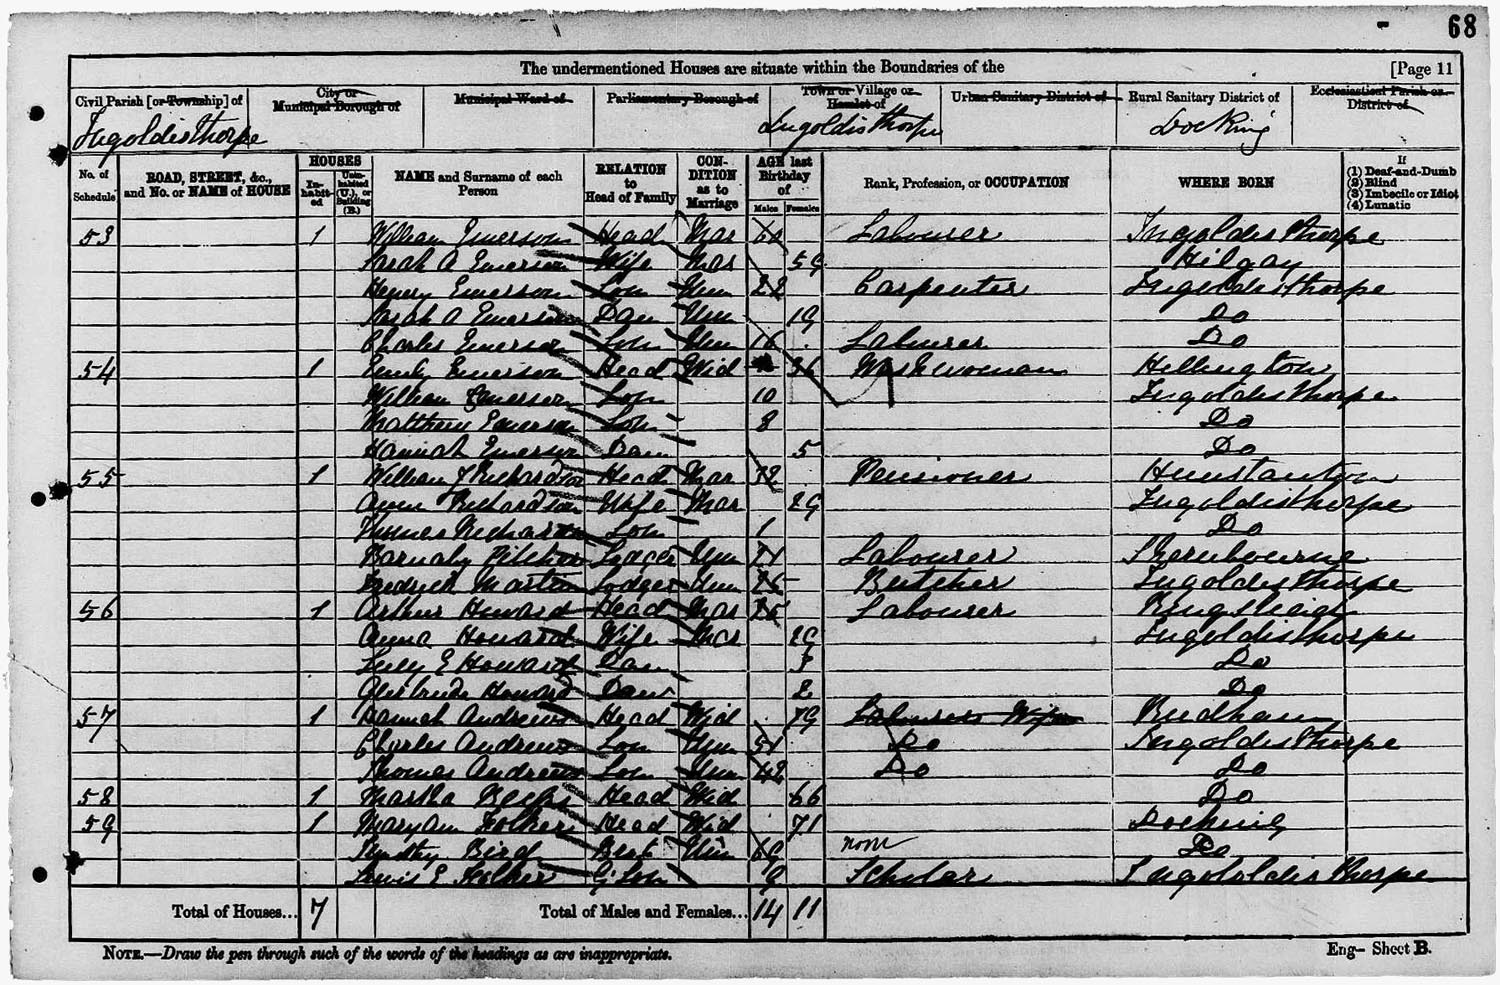 68
The undermentioned Houses are situate within the Boundaries of the [Page 11
Civil Parish [or Township] of City or Municipal Borough of Municipal Ward of Parliamentary Borough of Town or Village or Hamlet of Urban Sanitary District of Rural Sanitary District of Ecclesiastical Parish or District of
Ingoldisthorpe Ingoldisthorpe Docking
No. of Schedule ROAD, STREET, &c., and No. or NAME of HOUSE HOUSES In-habit-ed Unin-habited (U.), or Building (B.) NAME and Surname of each Person RELATION to Head of Family CON-DITION as to Marriage AGE last Birthday of Males Females Rank, Profession, or OCCUPATION WHERE BORN If (1) Deaf-and-Dumb (2) Blind (3) Imbecile or Idiot (4) Lunatic
53 1 William Emerson Head Mar Labourer Ingoldisthorpe
Sarah A Emerson Wife Mar 59 Hilgay
Henry Emerson Son Unm 22 Carpenter Ingoldisthorpe
Sarah A Emerson Dau Unm 19 Do
Charles Emerson Son Unm 16 Labourer Do
54 1 Emily Emerson Head Wid 36 Washwoman Hillington
William Emerson Son 10 Ingoldisthorpe
Matthew Emerson Son 8 Do
Hannah Emerson Dau 5 Do
55 1 William J Richardson Head Mar 32 Pensioner Hunstanton
Richardson Wife Mar 29 Ingoldisthorpe
Richardson Son 1 Do
Barnaby Pilcher Lodger Unm Labourer Shernbourne
Fredrick Martin Lodger Unm 25 Butcher Ingoldisthorpe
56 1 Arthur Howard Head Mar Labourer
Anna Howard Wife Mar 29 Ingoldisthorpe
Lucy E Howard Dau 3 Do
Gertrude Howard Daur 2 Do
57 1 Hannah Andrews Head Wid 79 Labourers Wife Rudham
Charles Andrews Son Unm 51 Do Ingoldisthorpe
Thomas Andrews Son Unm 42 Do Do
58 1 Martha Head Wid 66 Do
59 1 Mary Ann Folker Head Wid 71 Docking
Timothy Bird Unm 69 none Do
Lewis E Folker G Son 9 Scholar Ingololdisthorpe
Total of Houses... 7 Total of Males and Females... 14 11
NOTE.—Draw the pen through such of the words of the headings as are inappropriate. Eng- Sheet B.